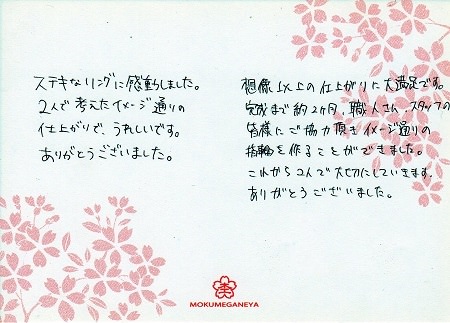 ステキなリングに感動しました。
2人で考えたイメージ通りの
仕上がりで、うれしいです。
ありがとうございました。
想像以上の仕上がりに大満足です。
完成まで約2ヶ月、職人さん、スタッフの
皆様にご協力頂きイメージ通りの
指輪を作ることができました。
これから2人で大切にしていきます。
ありがとうございました。
MOKUMEGANEYA